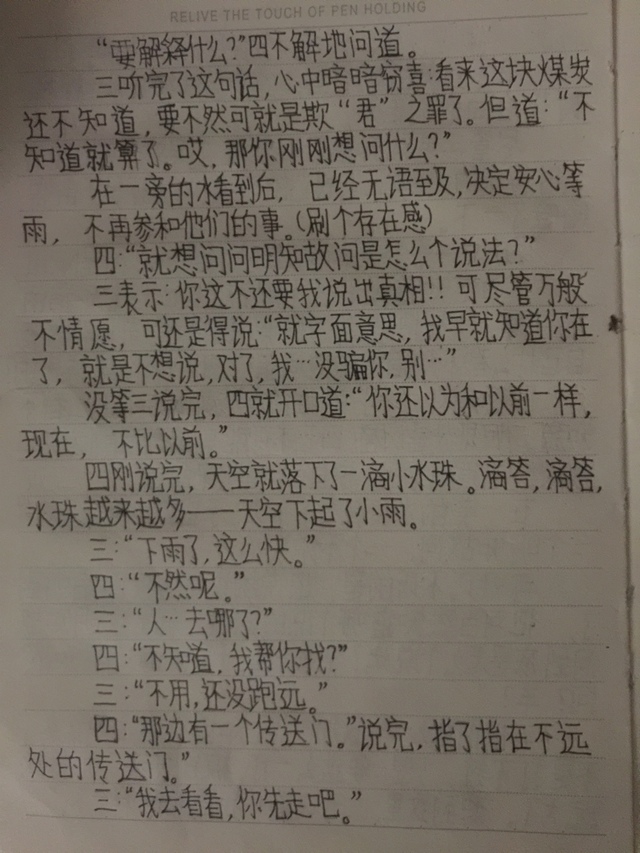 RELIVE THE TOUCH OF PEN HOLDING
“要解释什么?”四不解地问道。
三听完了这句话,心中暗暗窃喜:看来这块煤炭
还不知道,要不然可就是欺“君”之罪了。但道:“不
知道就算了。哎,那你刚刚想问什么?”
在一旁的水看到后,已经无语至及,决定安心等
雨,不再参和他们的事。(刷个存在感)
四:“就想问问明知故问是怎么个说法?”
三表示:你这不还要我说出真相!!可尽管万般
不情愿,可还是得说:“就字面意思,我早就知道你在
了,就是不想说,对了,我…没骗你,别…”
没等三说完,四就开口道:“你还以为和以前一样,
现在,不比以前。”
四刚说完,天空就落下了一滴小水珠。滴答,滴答,
水珠越来越多——天空下起了小雨。
三:“下雨了,这么快。”
四:“不然呢。”
三:“人…去哪了?”
四:“不知道,我帮你找?”
三:“不用,还没跑远。”
四:“那边有一个传送门。”说完,指了指在不远
处的传送门。”
三:“我去看看,你先走吧。”